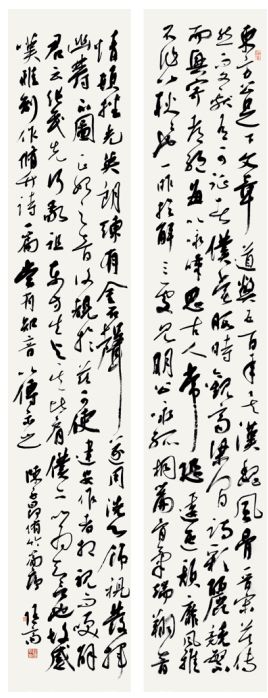 東方公足下文章道弊五百年矣漢魏風骨晉宋莫傳
然而文獻有可證者僕嘗暇時觀齊梁间诗彩麗競繁
而興寄都絕每以永嘆思古人常恐逶迤頹靡風雅
不作以耿耿也一昨於解三處見明公詠孤桐篇骨氣端翔音
情頓挫光英朗練有金石聲遂用洗心飾視發揮
幽鬱不圖正始之音復覩於兹可使建安作者相視而笑解
君云張茂先何敬祖東方生與其比肩僕亦以为知言也故感
嘆雅制作脩竹詩一篇當有知音以傳示之 陳子昂脩竹篇序